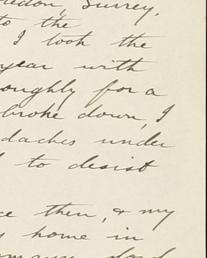 Surrey.
to the
I took the
year with
oughly for a
broke down, I
daches under
to desist
then, & my
home in